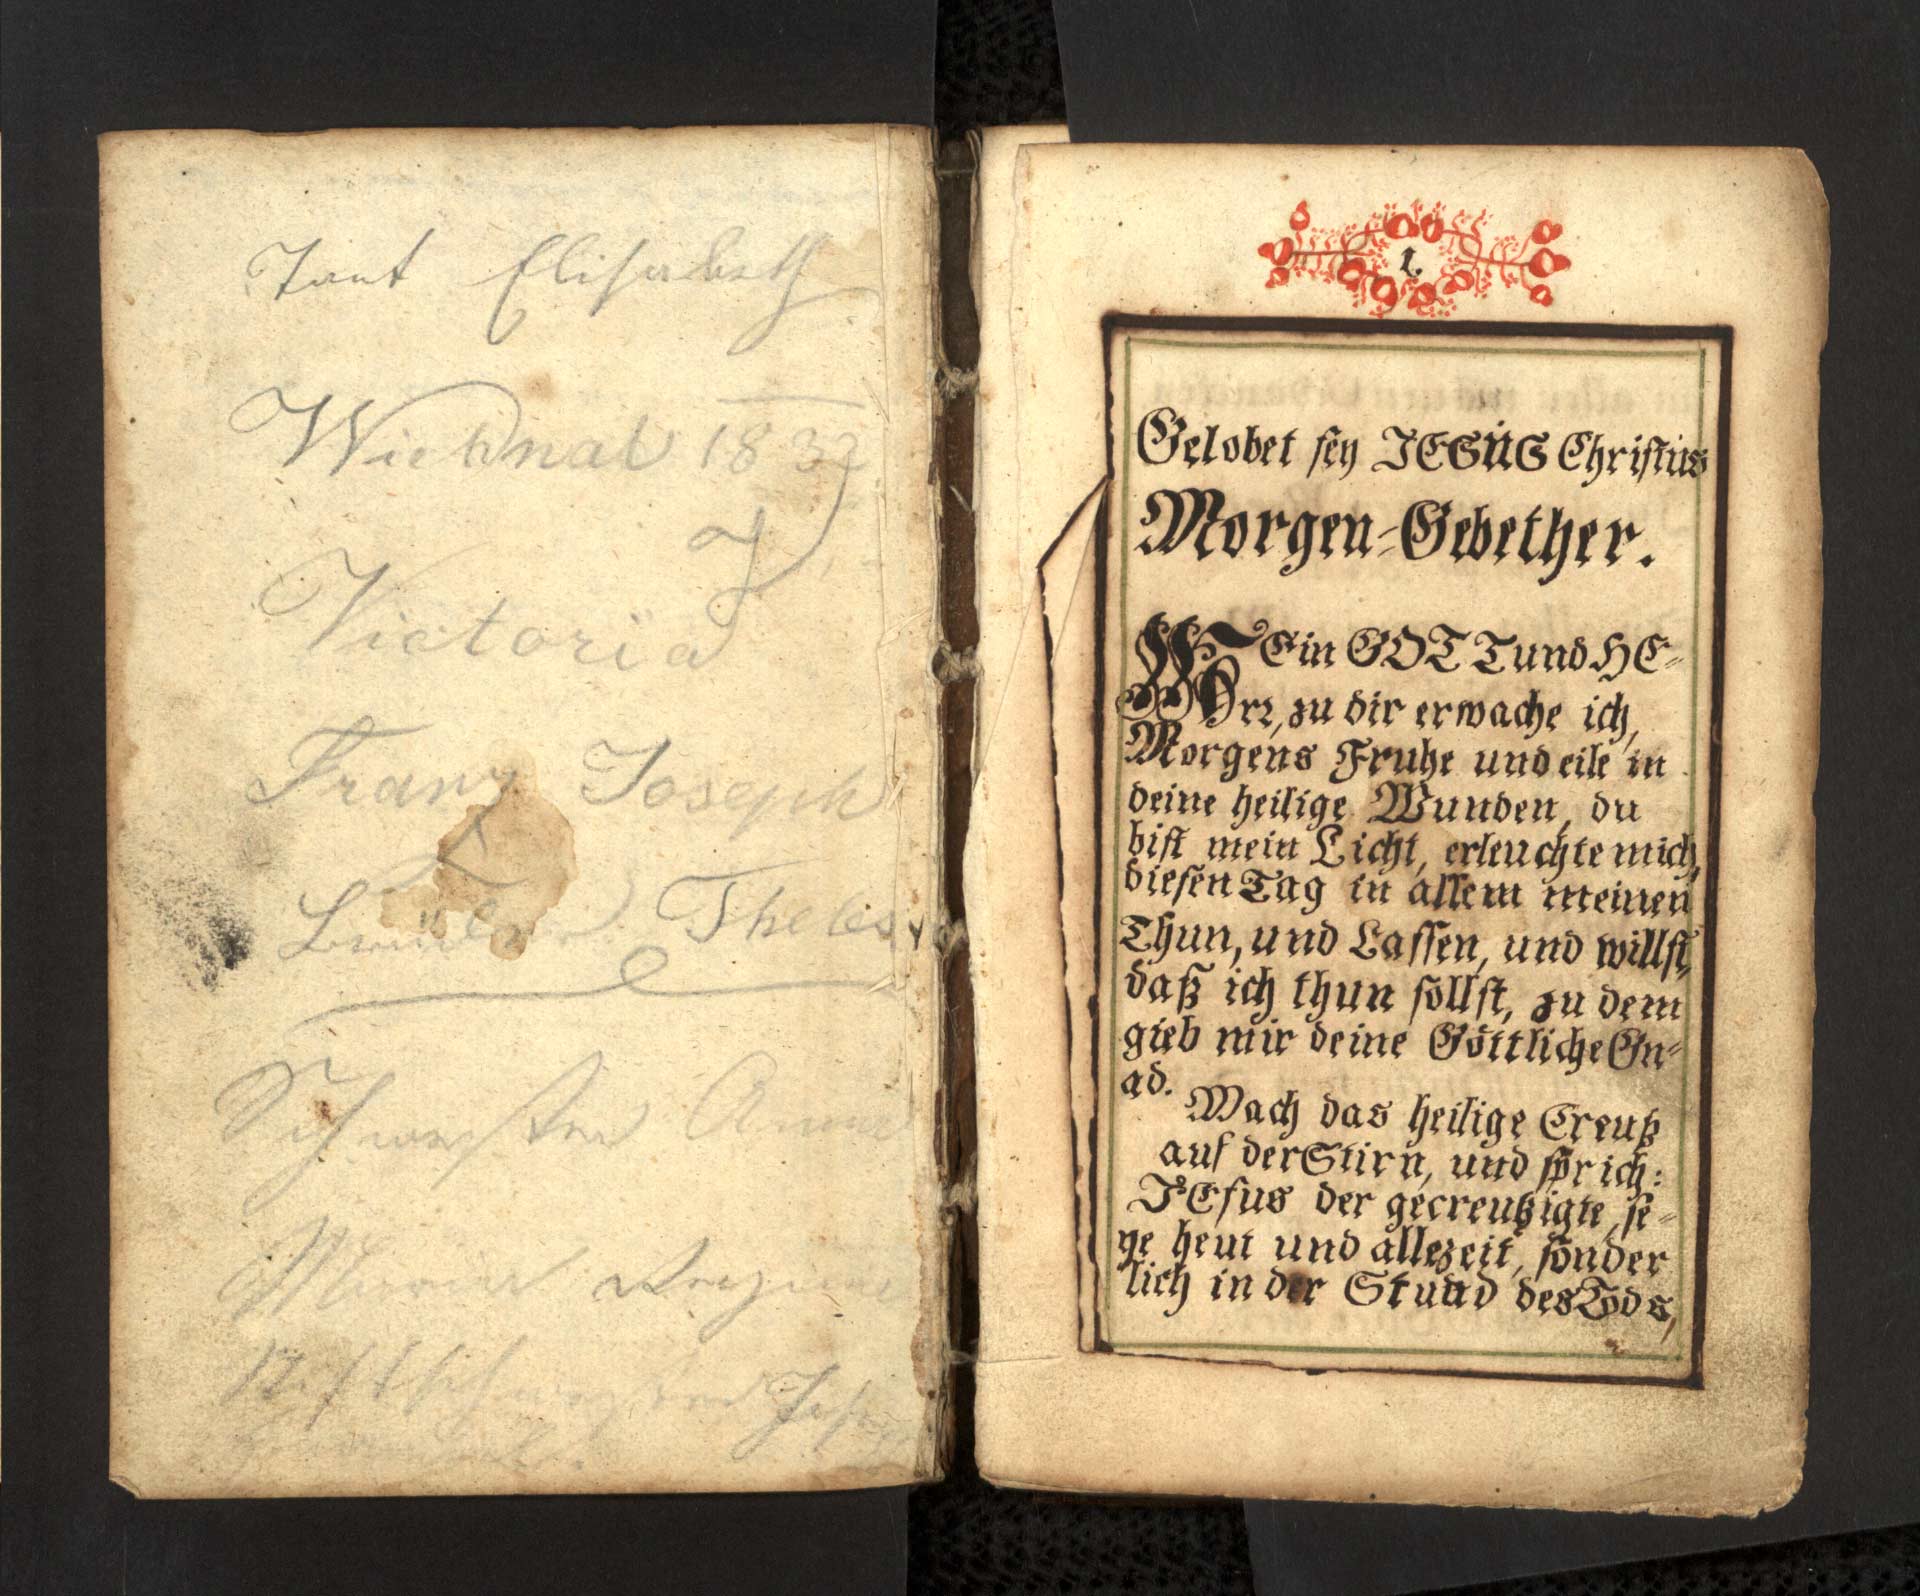 Tant Elisabeth
1832
Victoria
Franz Joseph
Thekes
Schwester Anna
1.
Gelobet sey JESUS Christus
Morgen=Gebether.
MEin GOTT und HE=
Err, zu dir erwache ich,
Morgens Fruhe und eile in
deine heilige Wunden, du
bist mein Licht, erleuchte mich,
diesen Tag in allem meinen
Thun, und Lassen, und willst,
daß ich thun sollst, zu dem
gieb mir deine Göttliche Gn=
ad.
Mach das heilige Creutz
auf der Stirn, und sprich:
JEsus der gecreutzigte, se=
ge heut und allezeit, sonder
lich in der Stund des Tods,